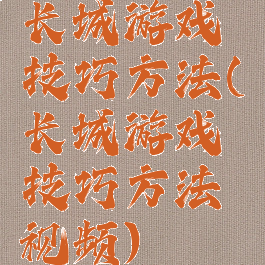 长城游戏
技巧方法(
长城游戏
技巧方法
视频)